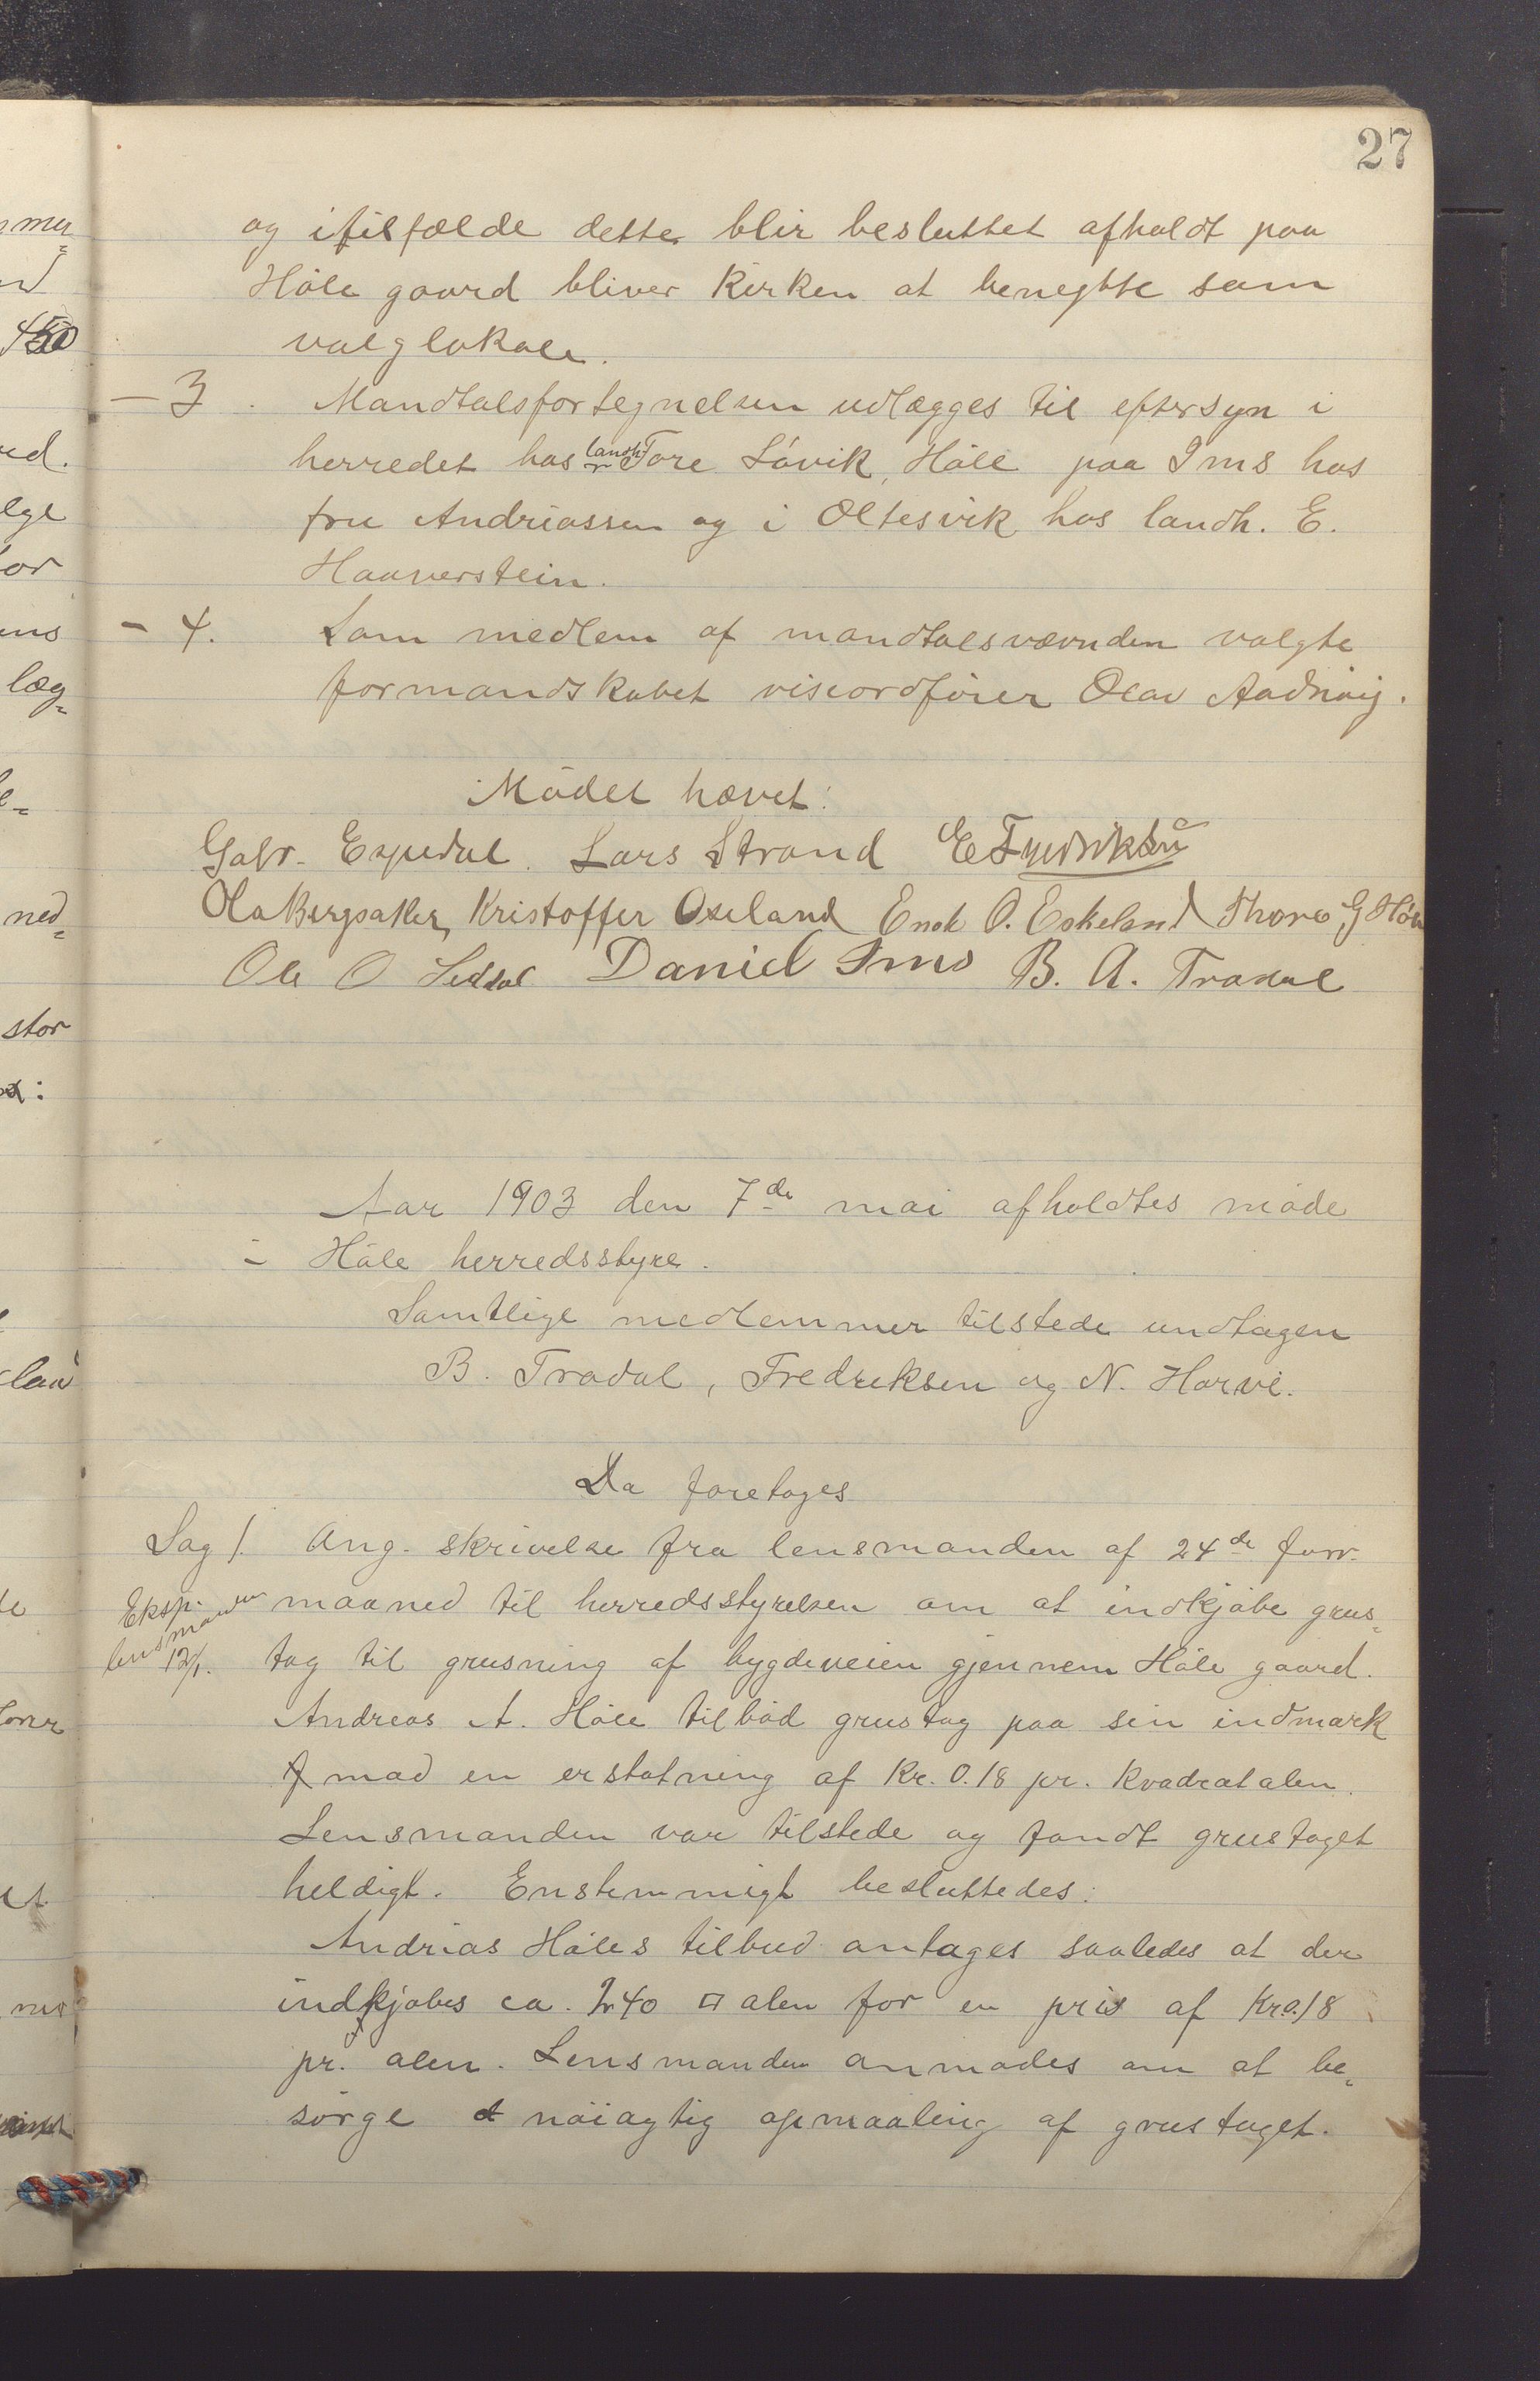 27
og i tilfælde dette blir besluttet afholdt paa
Höle gaard bliver kirken at benytte som
valglokale.
— 3. Mandtalsfortegnelsen udlægges til eftersyn i
herredet hos landh. Tore Lövik, Höle paa Ims hos
fru Andreassen og i Oltesvik hos landh. E.
Haaverstein.
- 4. Som medlem af mandtalsnævnden valgte
formandskabet viseordfører Olav Aadnöig.
Mödet hævet:
Gabr. Espedal. Lars Strand E Fredriksen
Ola Bergsaker, Kristoffer Oxeland Enok O. Eskeland Thore G Höle
Ole O Sedal Daniel Ims B. A. Tradal
Aar 1903 den 7de mai afholdtes möde
i Höle herredsstyre.
Samtlige medlemmer tilstede undtagen
B. Tradal, Fredriksen og N. Harvi.
Da foretoges
Sag 1. Ang. skrivelse fra lensmanden af 24de forr.
Eksp. lensmanden 12/1.
maaned til herredsstyrelsen om at indkjöbe grus=
tag til grusning af bygdeveien gjennem Höle gaard.
Andreas A. Höle tilböd grustag paa sin indmark
mod en erstatning af Kr. 0.18 pr. kvadratalen.
Lensmanden var tilstede og fandt grustaget
heldigt. Enstemmigt besluttedes:
Andreas Höles tilbud antages saaledes at der
indkjöbes ca. 240 □ alen for en pris af Kr 0.18
pr. alen. Lensmanden anmodes om at be=
sörge nöiagtig opmaaling af grustaget.